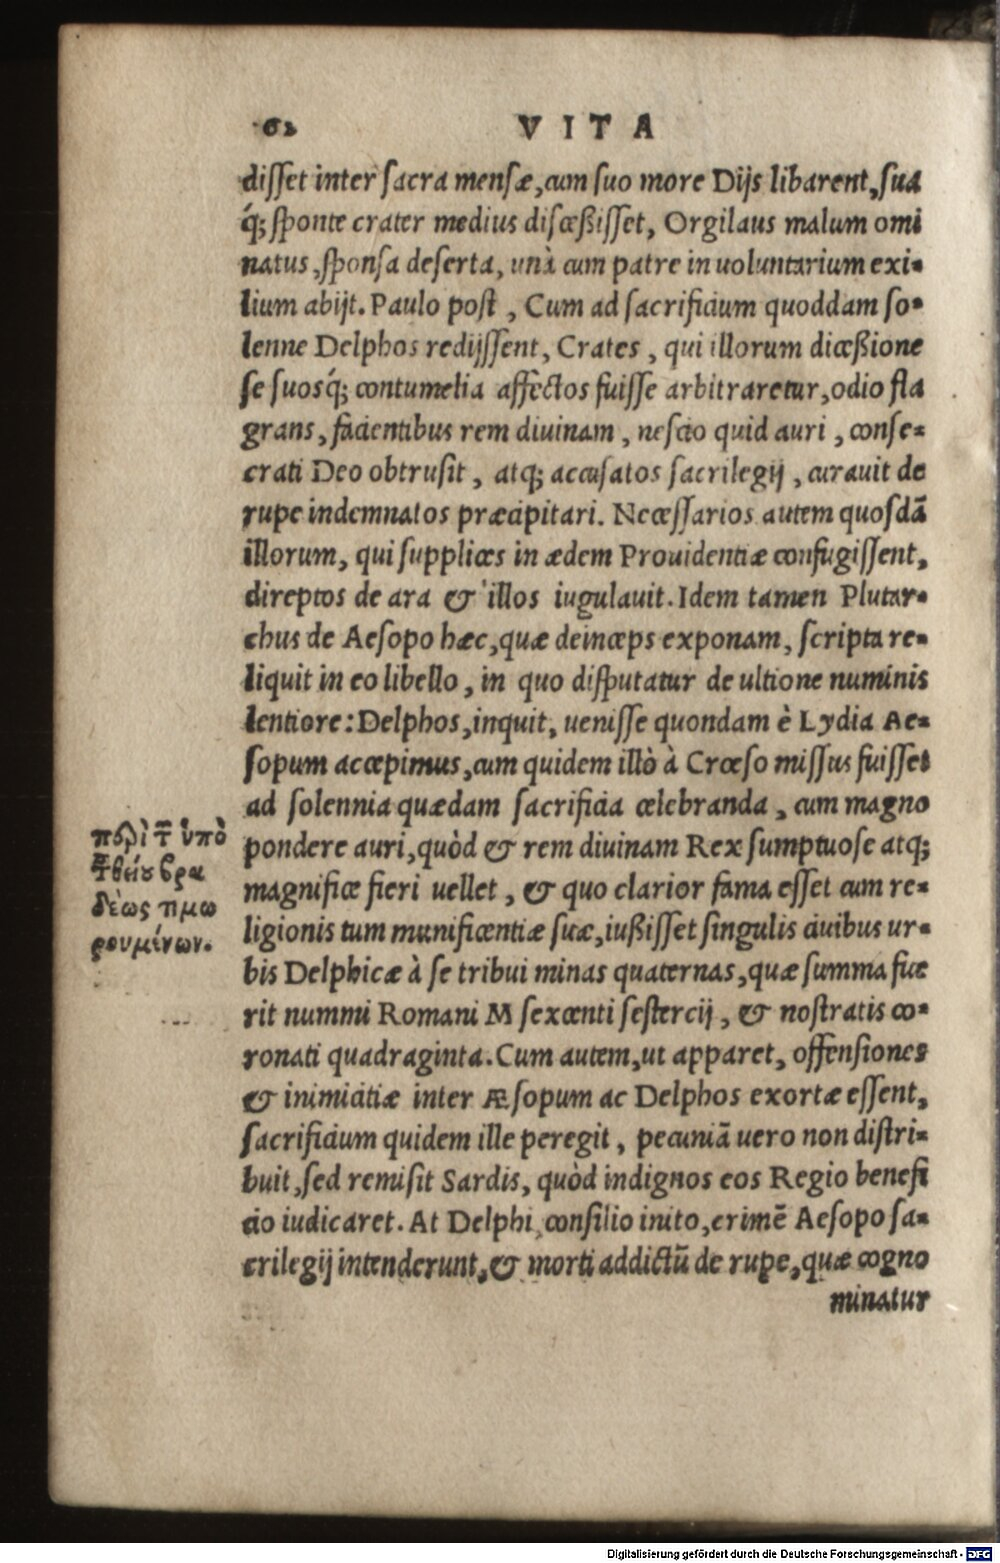 62 VITA
disſet inter ſacra menſæ, cum ſuo more Dijs libarent, ſua
q́; ſponte crater medius diſceßiſſet, Orgilaus malum omi
natus, ſponſa deſerta, unà cum patre in uoluntarium exi-
lium abijt. Paulo poſt, Cum ad ſacrificium quoddam ſo-
lenne Delphos redijſſent, Crates, qui illorum diceßione
ſe ſuosq́; contumelia affectos fuiſſe arbitraretur, odio fla
grans, facientibus rem diuinam, neſcio quid auri, conſe-
crati Deo obtruſit, atq; accuſatos ſacrilegij, curauit de
rupe indemnatos præcipitari. Neceſſarios autem quoſdā
illorum, qui ſupplices in ædem Prouidentiæ confugiſſent,
direptos de ara & illos iugulauit. Idem tamen Plutar-
chus de Aeſopo hæc, quæ deinceps exponam, ſcripta re-
liquit in eo libello, in quo diſputatur de ultione numinis
lentiore: Delphos, inquit, ueniſſe quondam è Lydia Ae-
ſopum accepimus, cum quidem illò à Crœſo miſſus fuiſſet
ad ſolennia quædam ſacrificia celebranda, cum magno
pondere auri, quòd & rem diuinam Rex ſumptuoſe atq;
magnifice fieri uellet, & quo clarior fama eſſet cum re-
ligionis tum munificentiæ ſuæ, iußiſſet ſingulis ciuibus ur-
bis Delphicæ à ſe tribui minas quaternas, quæ ſumma fue
rit nummi Romani M ſexcenti ſeſtercij, & noſtratis co-
ronati quadraginta. Cum autem, ut apparet, offenſiones
& inimicitiæ inter Æſopum ac Delphos exortæ eſſent,
ſacrificium quidem ille peregit, pecuniā uero non diſtri-
buit, ſed remiſit Sardis, quòd indignos eos Regio benefi
cio iudicaret. At Delphi, conſilio inito, crimē Aeſopo ſa-
crilegij intenderunt, & morti addictū de rupe, quæ cogno
minatur
περὶ τ̄ ὑπὸ
τ̄ θείου βρα
δέως τιμω
ρουμένων.
Digitalisierung gefördert durch die Deutsche Forschungsgemeinschaft - DFG